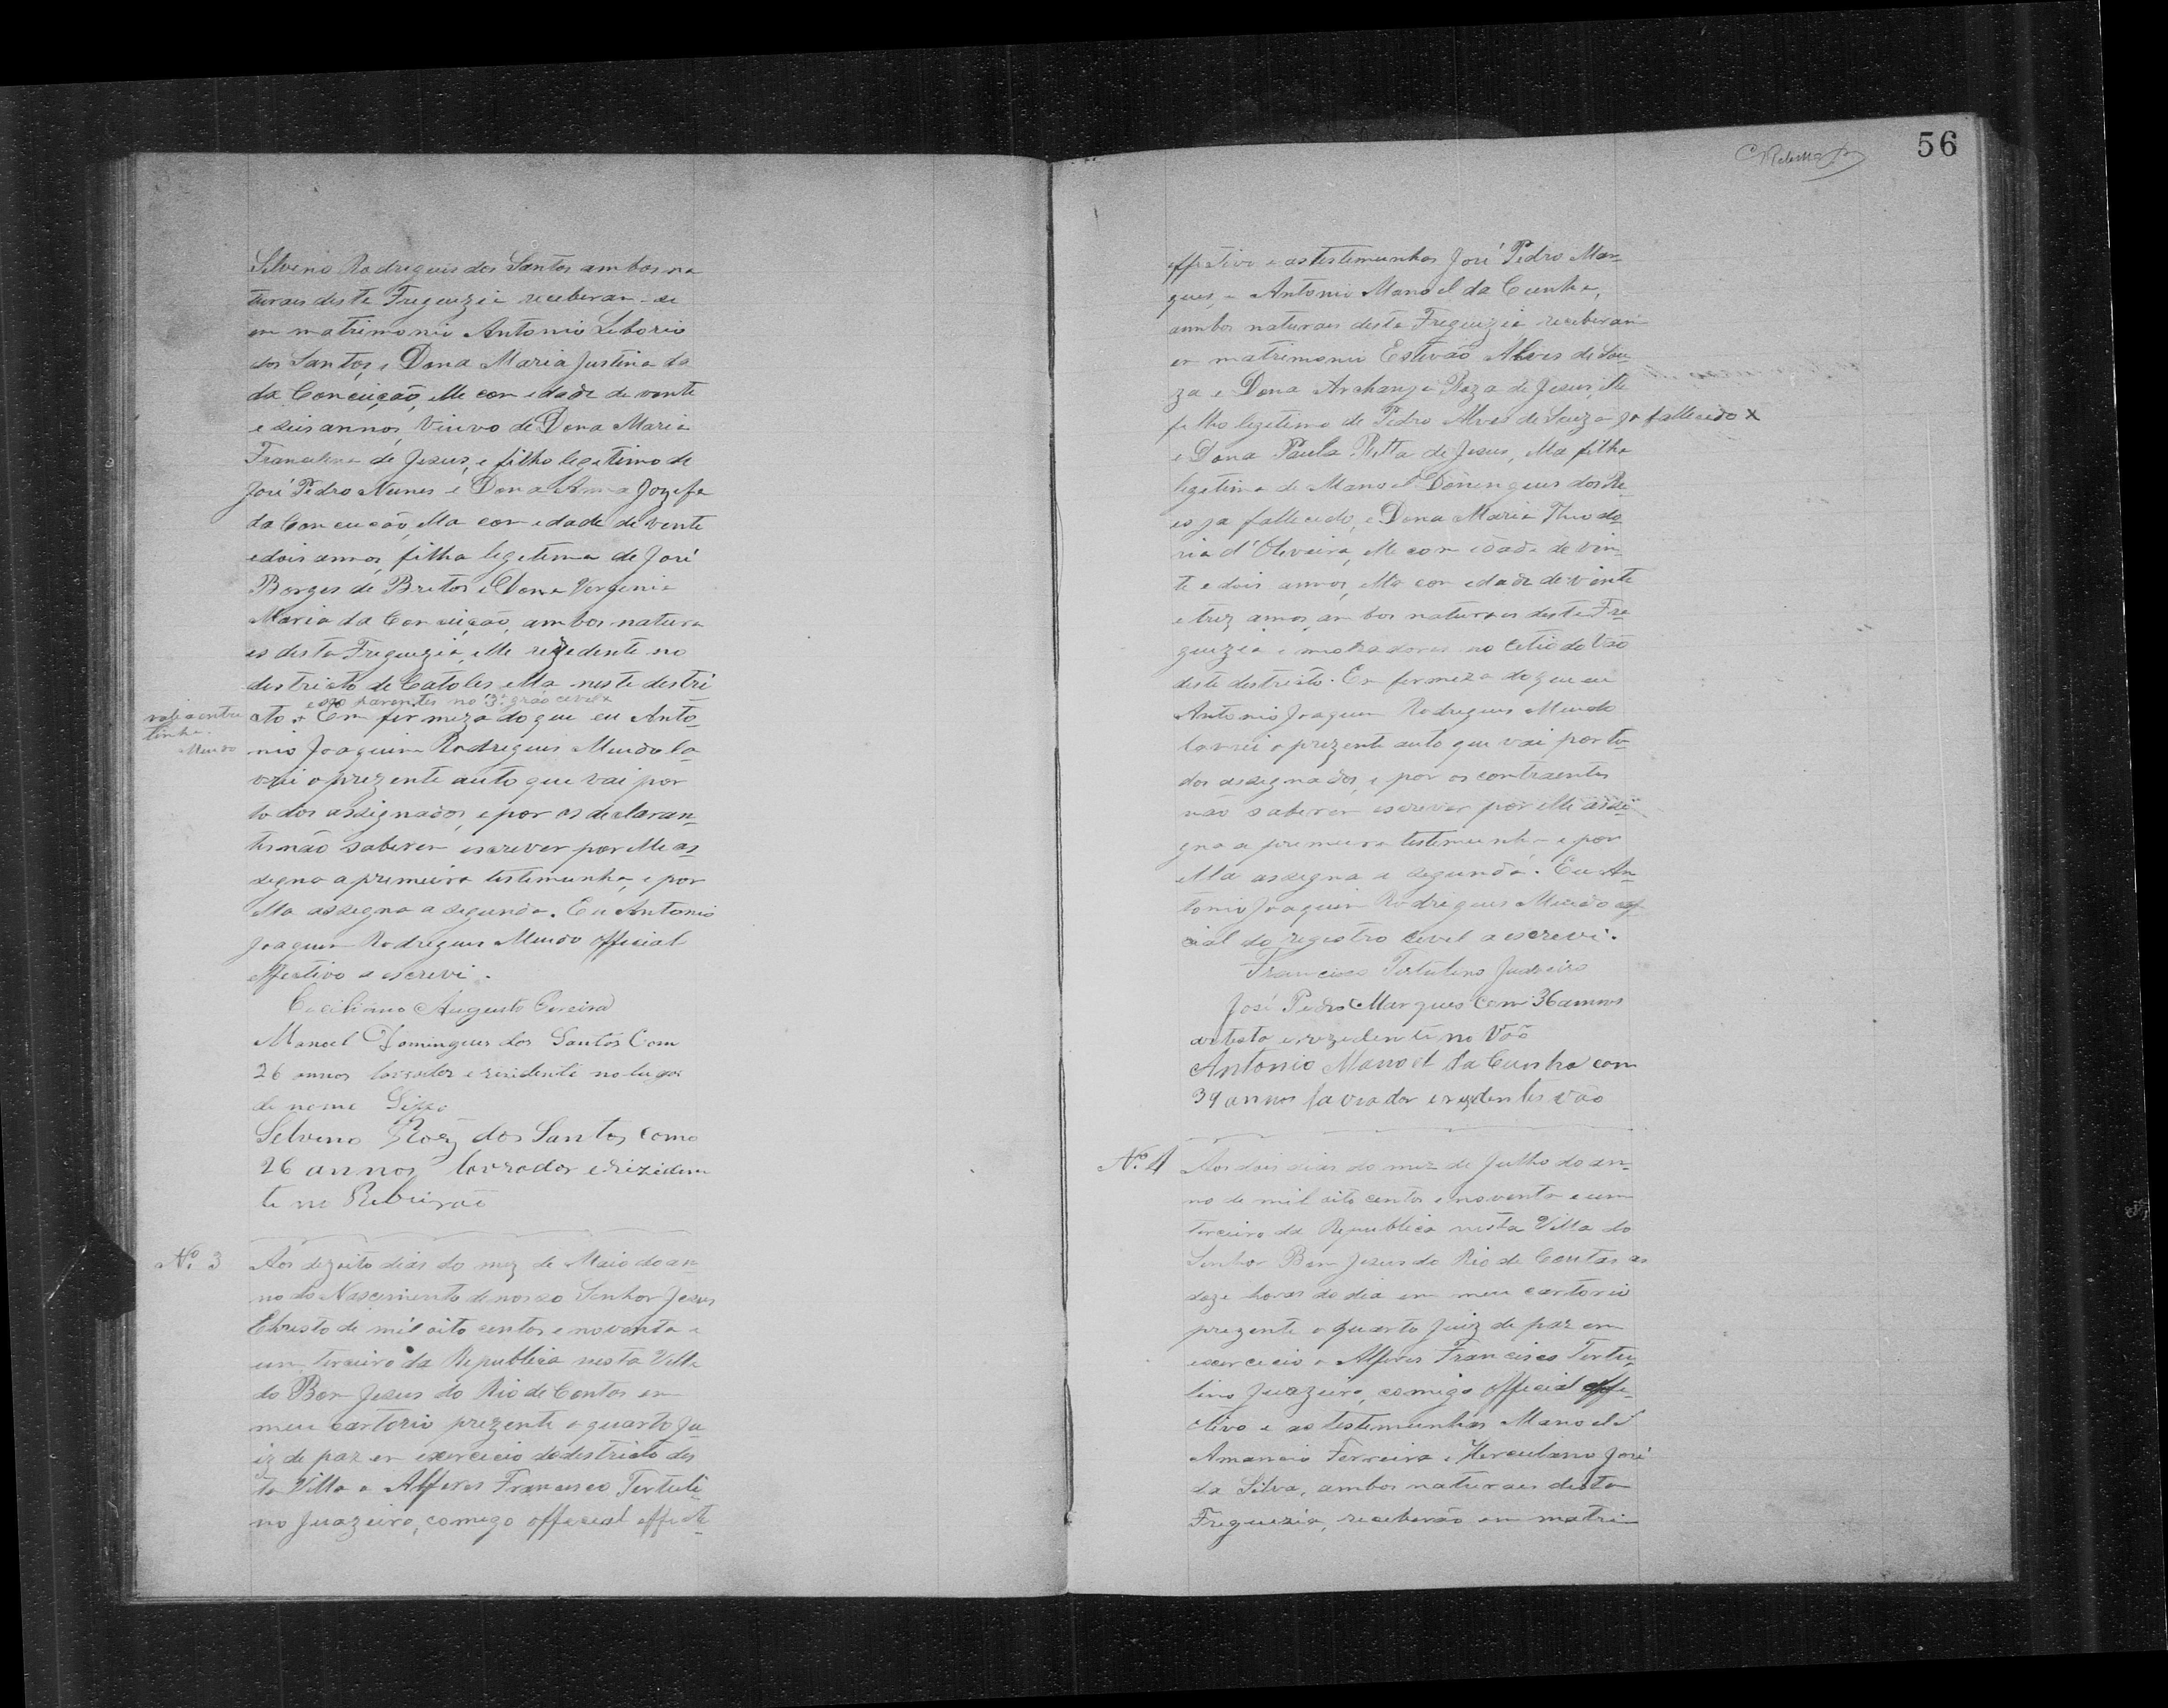 Silvino Rodrigues dos Santos ambos na
turaes desta Freguezia receberam-se
em matrimonio Antonio Liborio
dos Santos, e Dona Maria Justina da
da Conceição, elle com edade de vente
e seis annos, Viuvo de Dona Maria
Francelina de Jesus, e filho legetimo de
José Pedro Nunes e Dona Anna Jozefa
da Conceição, ella com edade de vente
e dois annos, filha legetema de José
Borges de Britos e Dona Vergenia
Maria da Conceição, ambos natura
es desta Freguezia, elle rezedente no
destricto de Catoles ella neste destri
e são parentes no 3º grão civel x
cto. x Em fermeza do que eu Anto-
vale a entre
linha.
Mundo
nio Joaquim Rodrigues Mundo la-
vrei o prezente auto que vai por
todos assignados, e por os declaran-
tes não saberem escrever por elle as
segna a primeira testemunha, e por
ella assegna a segunda. Eu Antonio
Joaquim Rodrigues Mundo official
effectivo o escrevi.
Augusto Pereira
Manoel Domingues dos Santos Com
26 annos lavrador e residente no lugar
de nome
Selveno Roiz dos Santos como
26 annos lavrador e rizidem
te no Ribeirão
Nº 3 Aos dezoito dias do mez de Maio do an-
no do Nascimento de nosso Senhor Jesus
Christo de mil oito centos e noventa e
um, terceiro da Republica nesta Villa
do Bom Jesus do Rio de Contas em
meu cartorio prezente o quarto Ju
iz de paz em exercicio do destricto des
ta Villa o Alferes Francisco Tertuli-
no Juazeiro, comigo official effecte-
56
effectivo e as testemunhas José Pedro Mar-
ques, e Antonio Manoel da Cunha,
ambos naturaes desta Freguizia receberam
em matrimonio Estevão Alves de Sou-
za e Dona Archanja Roza de Jesus, elle
filho legetimo de Pedro Alves de Souza ja fallecido x
e Dona Paula Ritta de Jesus, ella filha
legetima de Manoel Domingues dos Re-
is ja fallecido, e Dona Maria Theodo-
ria d'Oliveira, elle com edade de vin-
te e dois annos, ella com edade de vente
e trez annos, ambos naturaes desta Fre-
guezia e moradores no Citio do Vão
deste destricto. Em fermeza do que eu
Antonio Joaquim Rodrigues Mundo
lavrei o prezente auto que vai por to-
dos assegnados, e por os contraentes
não saberem escrever por elle assi-
gna a premeira testemunha e por
ella assegna a segunda. Eu An-
tonio Joaquim Rodrigues Mundo offi
cial do registro cevel a escrevi.
Francisco Tertulino Juazeiro
José Pedro Marques Com 36 annos
artesta e rezidente no Vão
Antonio Manoel da Cunha com
39 annos lavrador e rezidentes Vão
Nº 4 Aos dois dias do mez de Julho do an-
no de mil oito centos e noventa e um
terceiro da Republica nesta Villa do
Senhor Bom Jesus do Rio de Contas as
doze horas do dia em meu cartorio
prezente o quarto Juiz de paz em
exercicio o Alferes Francisco Tertu-
lino Juazeiro, comigo official effe-
ctivo e as testemunhas Manoel
Amancio Ferreira e Herculano José
da Silva, ambos naturaes desta
Freguezia, receberão em matri-